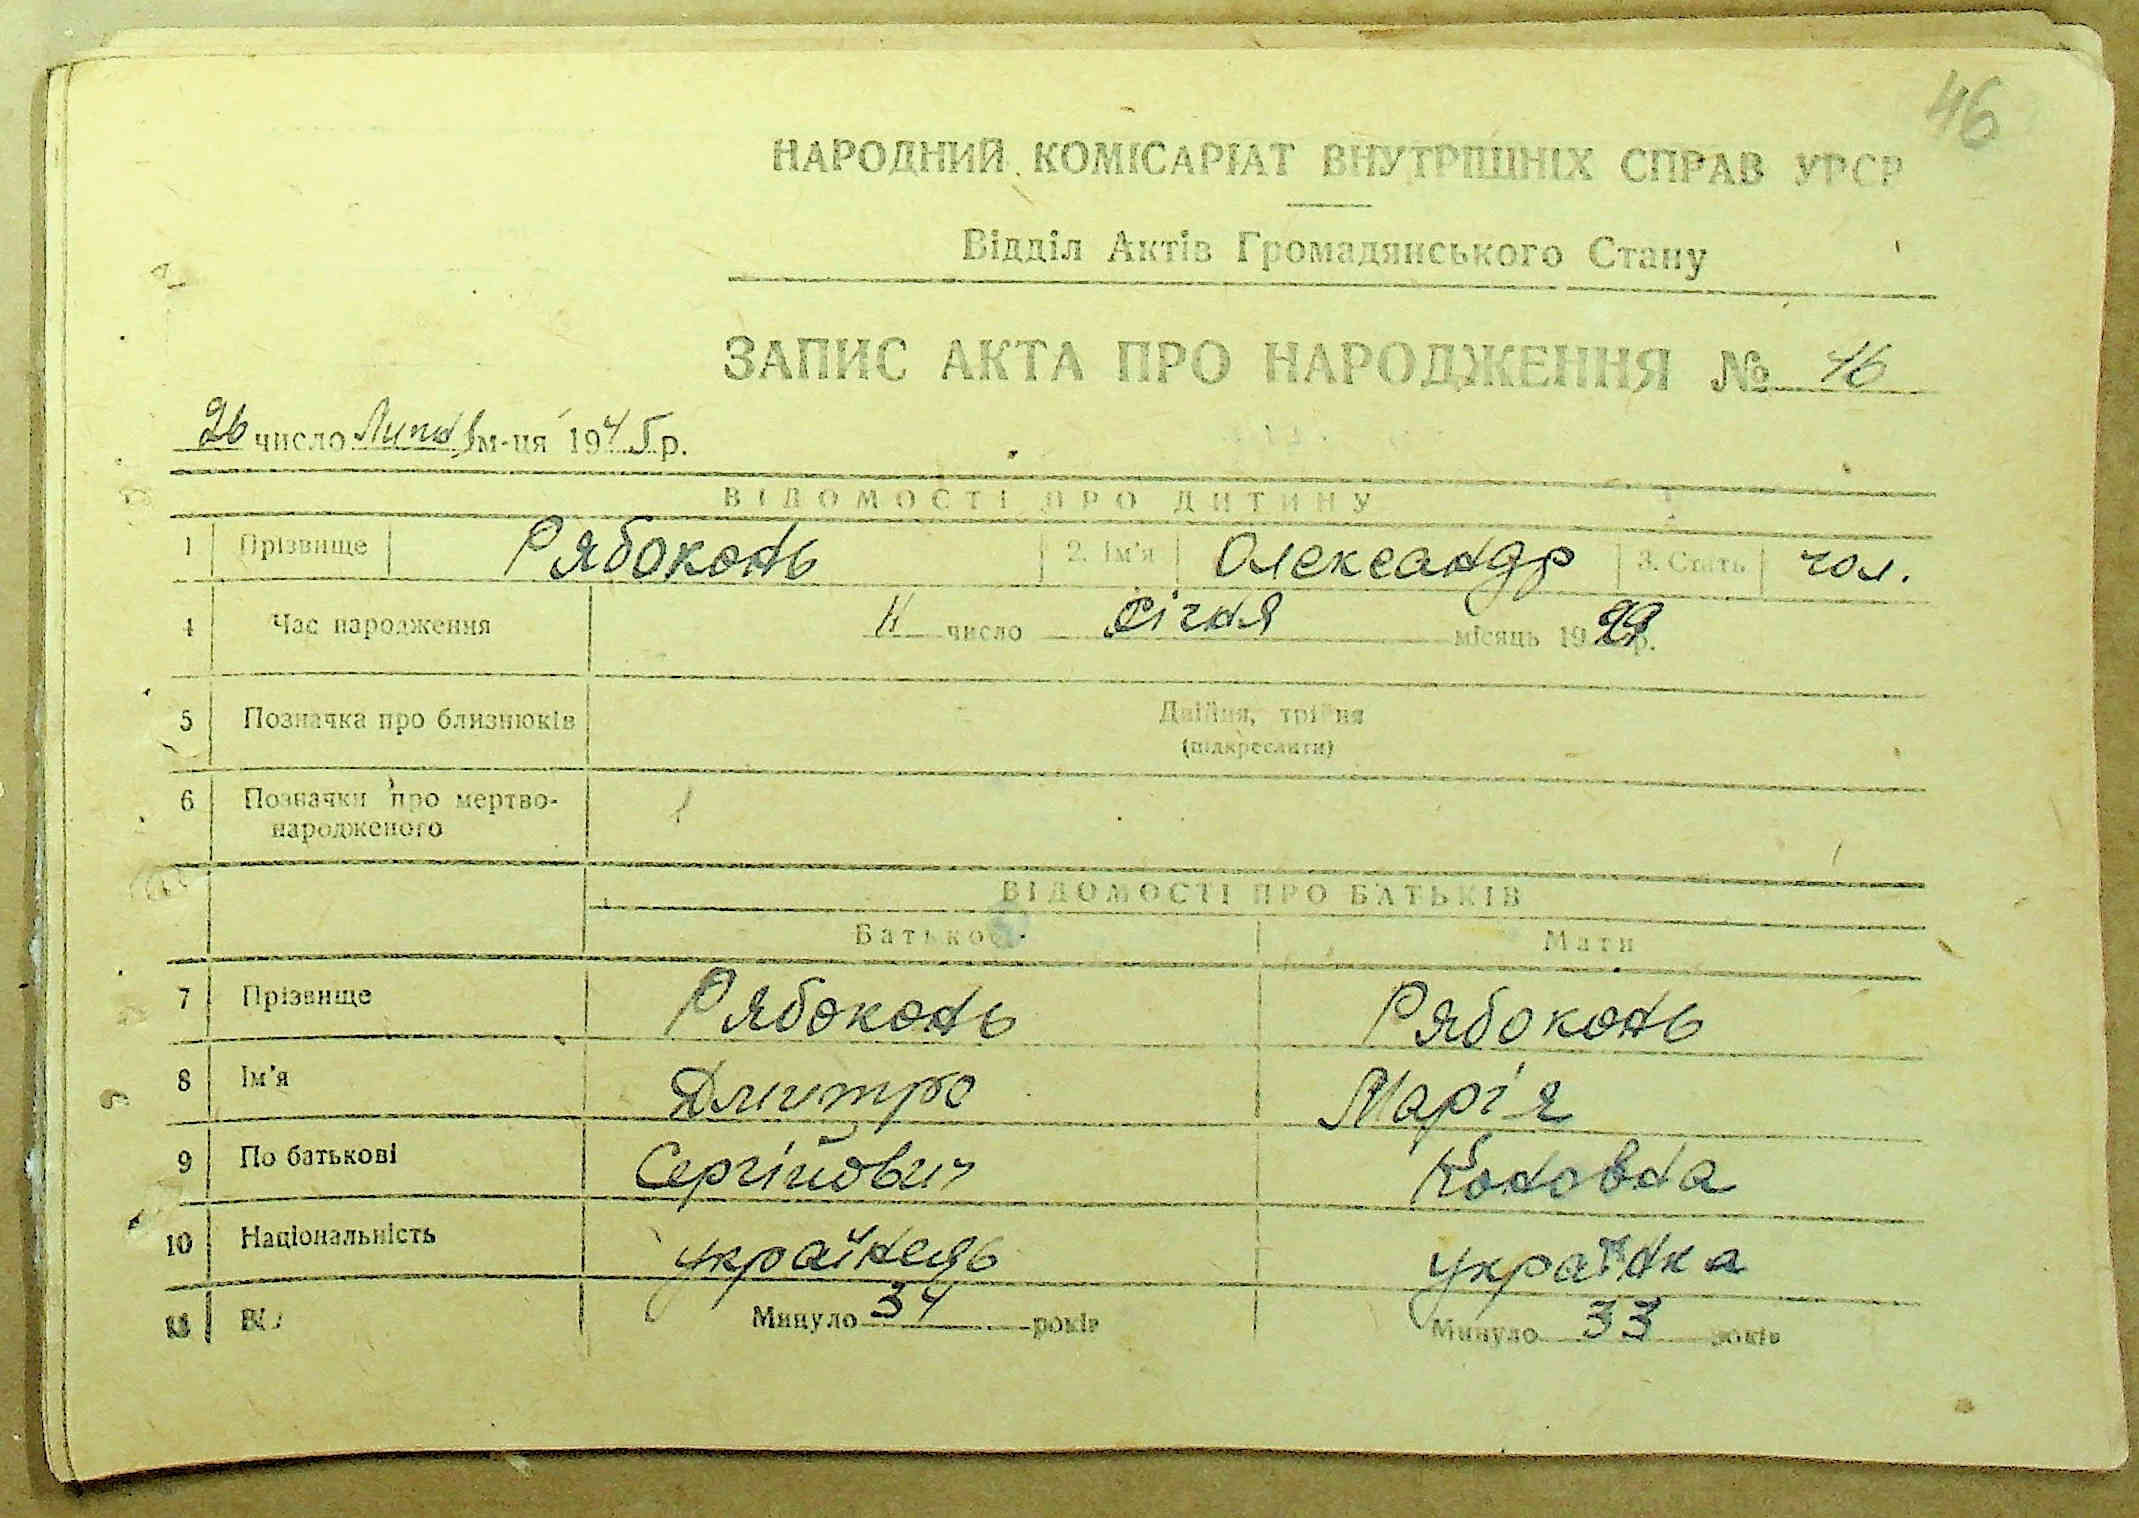 46
НАРОДНИЙ КОМІСАРІАТ ВНУТРІШНІХ СПРАВ УРСР
Відділ Актів Громадянського Стану
ЗАПИС АКТА ПРО НАРОДЖЕННЯ № 46
26 число Липня м-ця 1945 р.
ВІДОМОСТІ ПРО ДИТИНУ
1 Прізвище Рябоконь 2. Ім'я Олександр 3. Стать чол.
4 Час народження 11 число січня місяць 1929 р.
5 Позначка про близнюків Двійня, трійня
(підкреслити)
6 Позначки про мертво-
народженого
ВІДОМОСТІ ПРО БАТЬКІВ
Батько Мати
7 Прізвище Рябоконь Рябоконь
8 Ім'я Дмитро Марія
9 По батькові Сергійович Кононовна
10 Національність українець українка
11 Вік Минуло 34 років Минуло 33 років